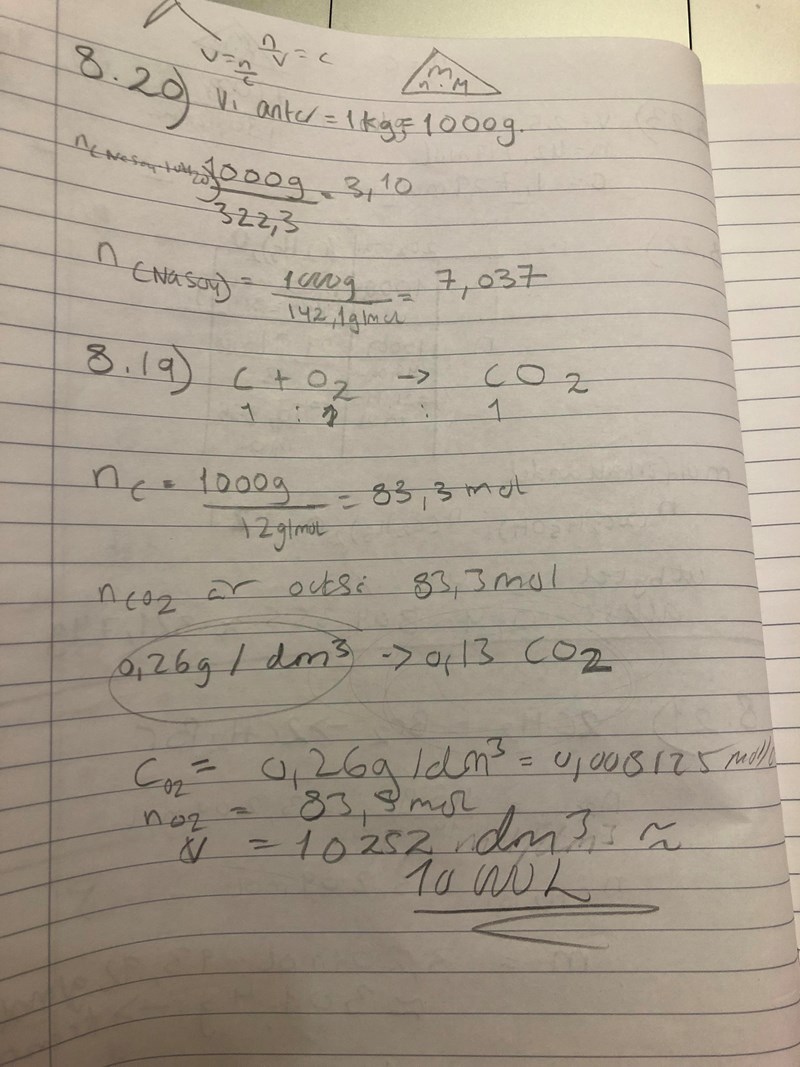 V = n/c n/V = c
m
n · M
8.20) Vi antar = 1kg = 1000g.
1000g / 322,3 = 3,10
n(NaSO4) = 1000g / 142,1g/mol = 7,037
8.19) C + O2 -> CO2
1 : 1 : 1
nC = 1000g / 12g/mol = 83,3 mol
nCO2 är också 83,3mol
0,26g / dm³ -> 0,13 CO2
CO2 = 0,26g/dm³ = 0,008125 mol/
nO2 = 83,3mol
V = 10252 dm³ ≈
10 000L